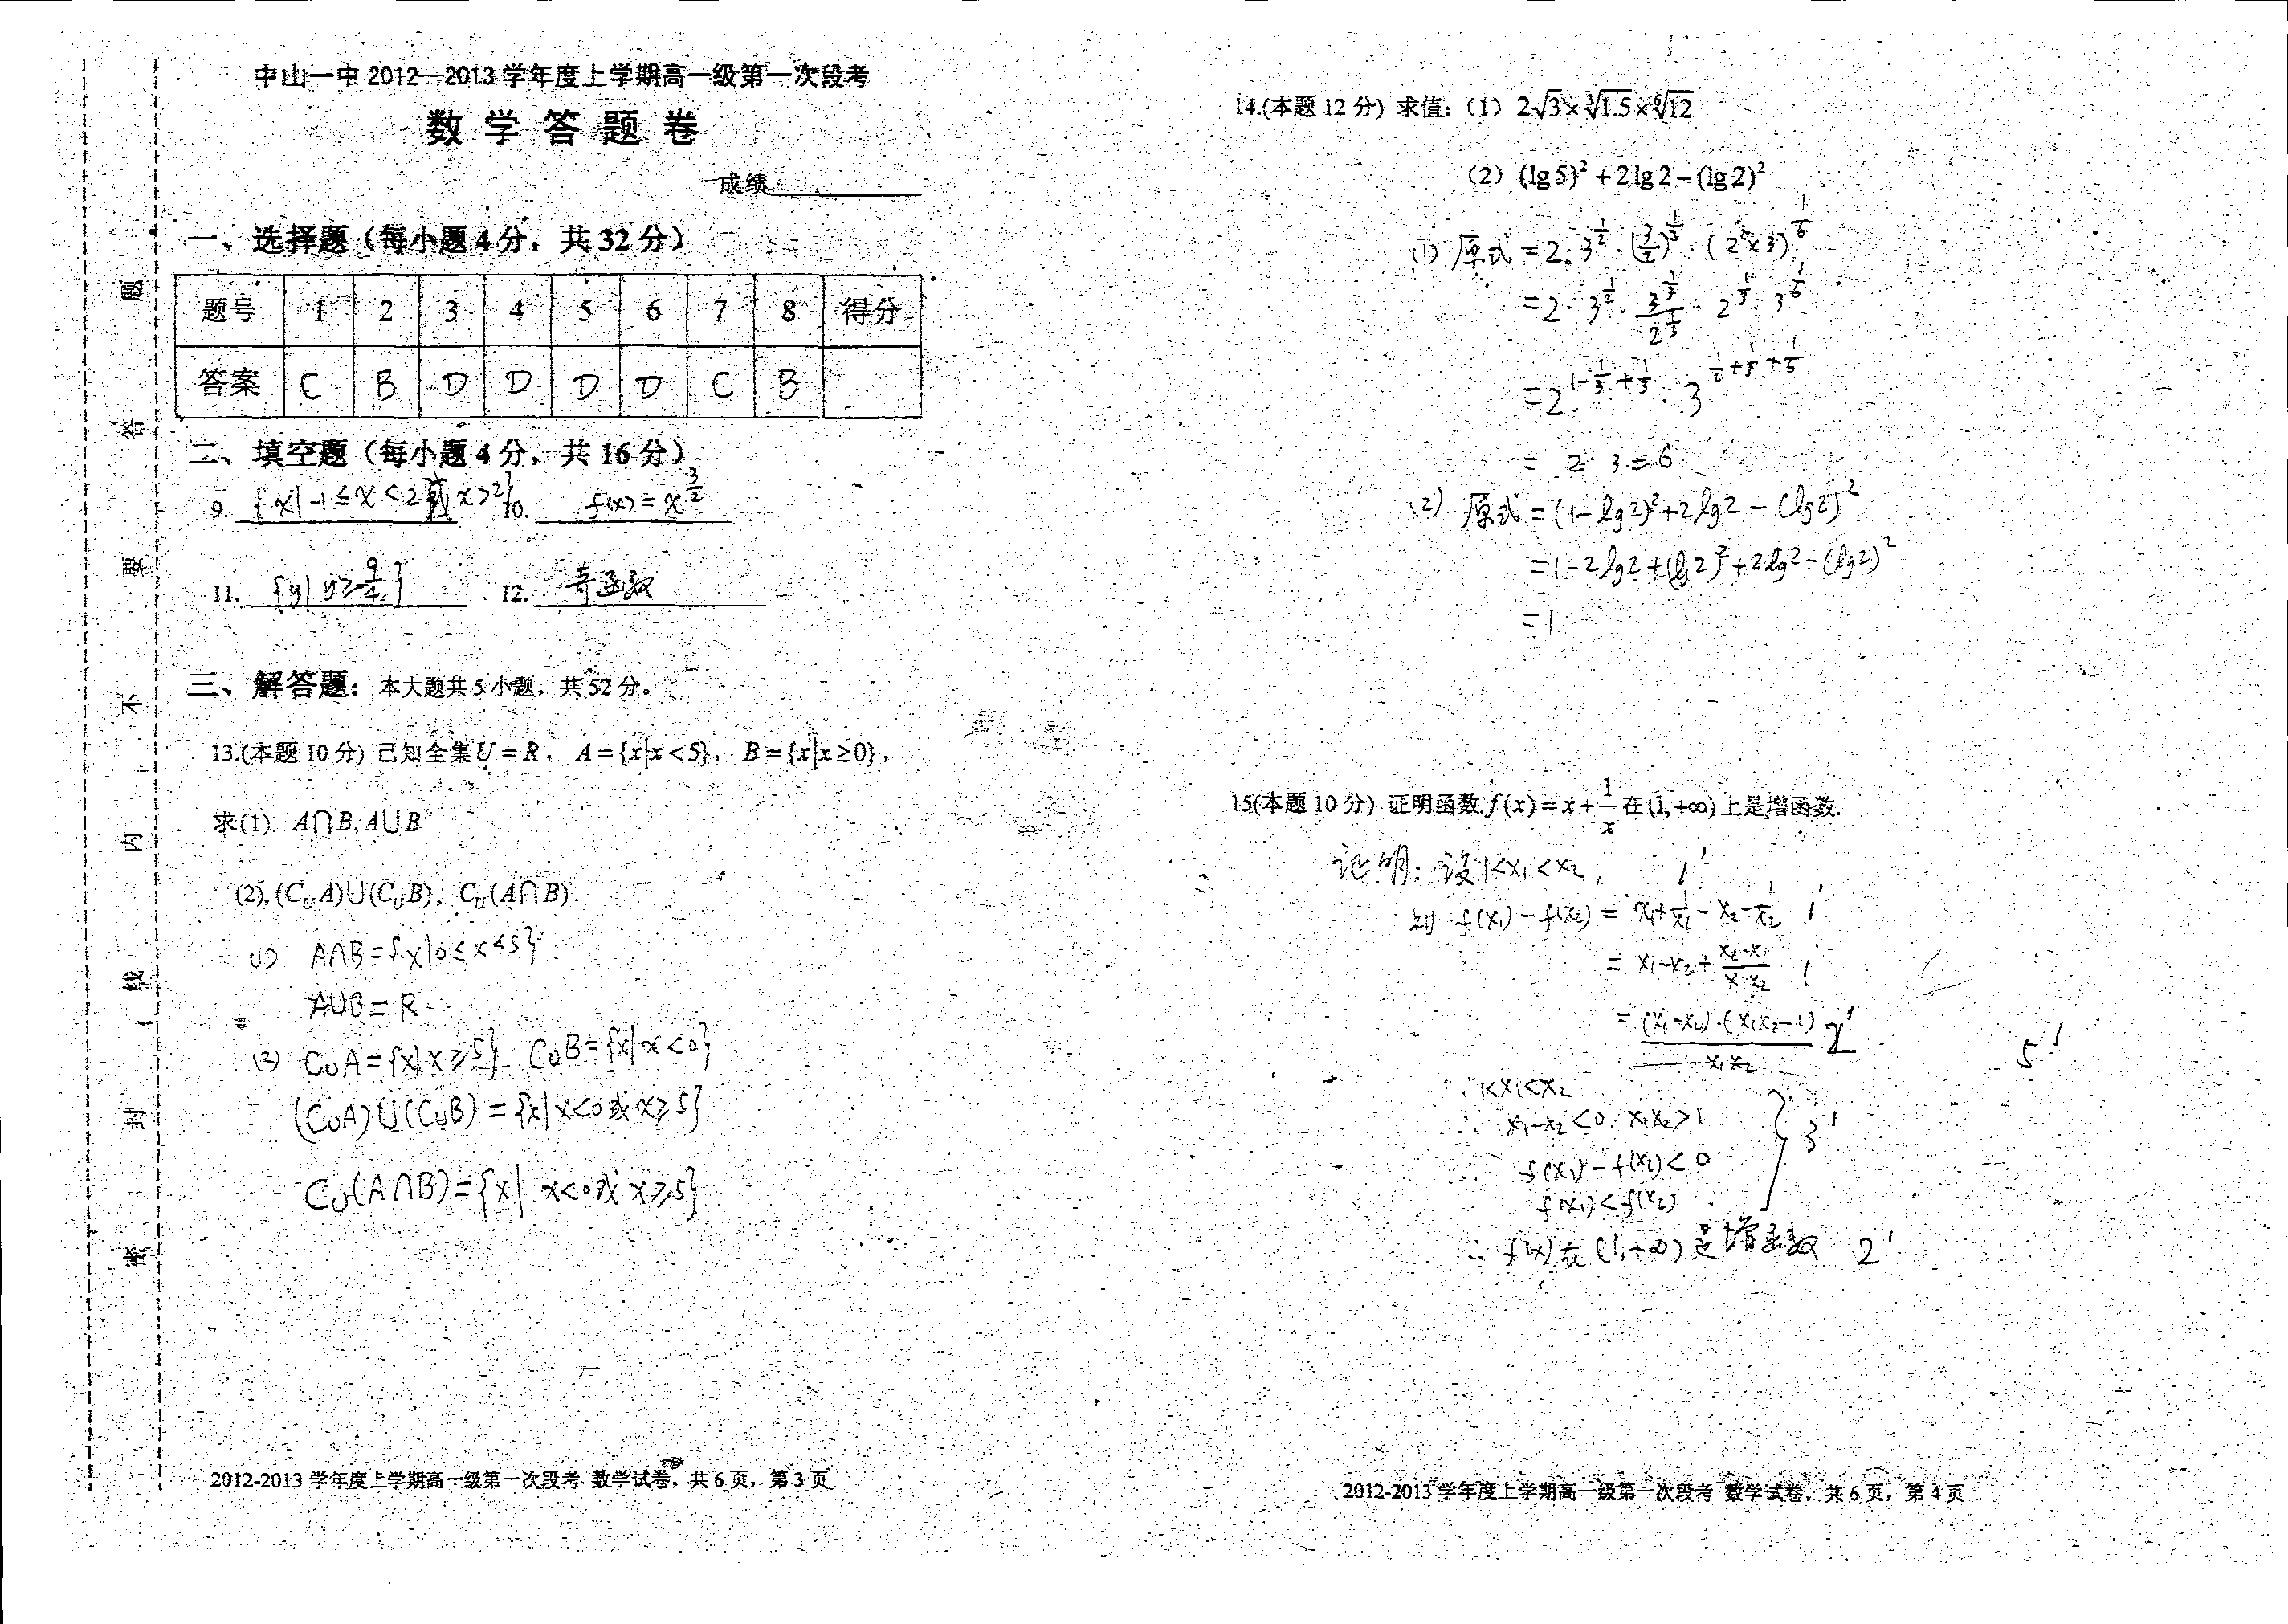 中山一中 2012—2013 学年度上学期高一级第一次段考
数 学 答 题 卷
成绩
一、选择题（每小题 4 分，共 32 分）
题号 1 2 3 4 5 6 7 8 得分
答案 C B D D D D C B
二、填空题（每小题 4 分，共 16 分）
9. {x|-1≤x<2或x>2} 10. f(x)=x^{3/2}
11. {y|y≥-9/4} 12. 奇函数
三、解答题：本大题共 5 小题，共 52 分。
13.(本题 10 分) 已知全集 U=R，A={x|x<5}，B={x|x≥0}，
求(1) A∩B, A∪B
(2), (C_U A)∪(C_U B)，C_U(A∩B).
(1) A∩B={x|0≤x<5}
A∪B=R
(2) C_U A={x|x≥5} C_U B={x|x<0}
(C_U A)∪(C_U B)={x|x<0或x≥5}
C_U(A∩B)={x|x<0或x≥5}
题 答 要 不 内 线 封 密
2012-2013 学年度上学期高一级第一次段考 数学试卷，共 6 页，第 3 页
14.(本题 12 分) 求值：(1) 2√3×∛1.5×⁶√12
(2) (lg5)²+2lg2-(lg2)²
(1) 原式=2·3^{1/2}·(3/2)^{1/3}·(2²×3)^{1/6}
=2·3^{1/2}·3^{1/3}/2^{1/3}·2^{1/3}·3^{1/6}
=2^{1-1/3+1/3}·3^{1/2+1/3+1/6}
=2·3=6
(2) 原式=(1-lg2)²+2lg2-(lg2)²
=1-2lg2+(lg2)²+2lg2-(lg2)²
=1
15(本题 10 分) 证明函数 f(x)=x+1/x 在(1,+∞)上是增函数.
证明：设1<x₁<x₂, 1'
则 f(x₁)-f(x₂)=x₁+1/x₁-x₂-1/x₂ 1'
=x₁-x₂+(x₂-x₁)/(x₁x₂) 1'
=(x₁-x₂)·(x₁x₂-1)/(x₁x₂) 2' 5'
∵1<x₁<x₂
∴ x₁-x₂<0. x₁x₂>1
f(x₁)-f(x₂)<0 3'
f(x₁)<f(x₂)
∴ f(x)在(1,+∞)是增函数 2'
2012-2013 学年度上学期高一级第一次段考 数学试卷，共 6 页，第 4 页